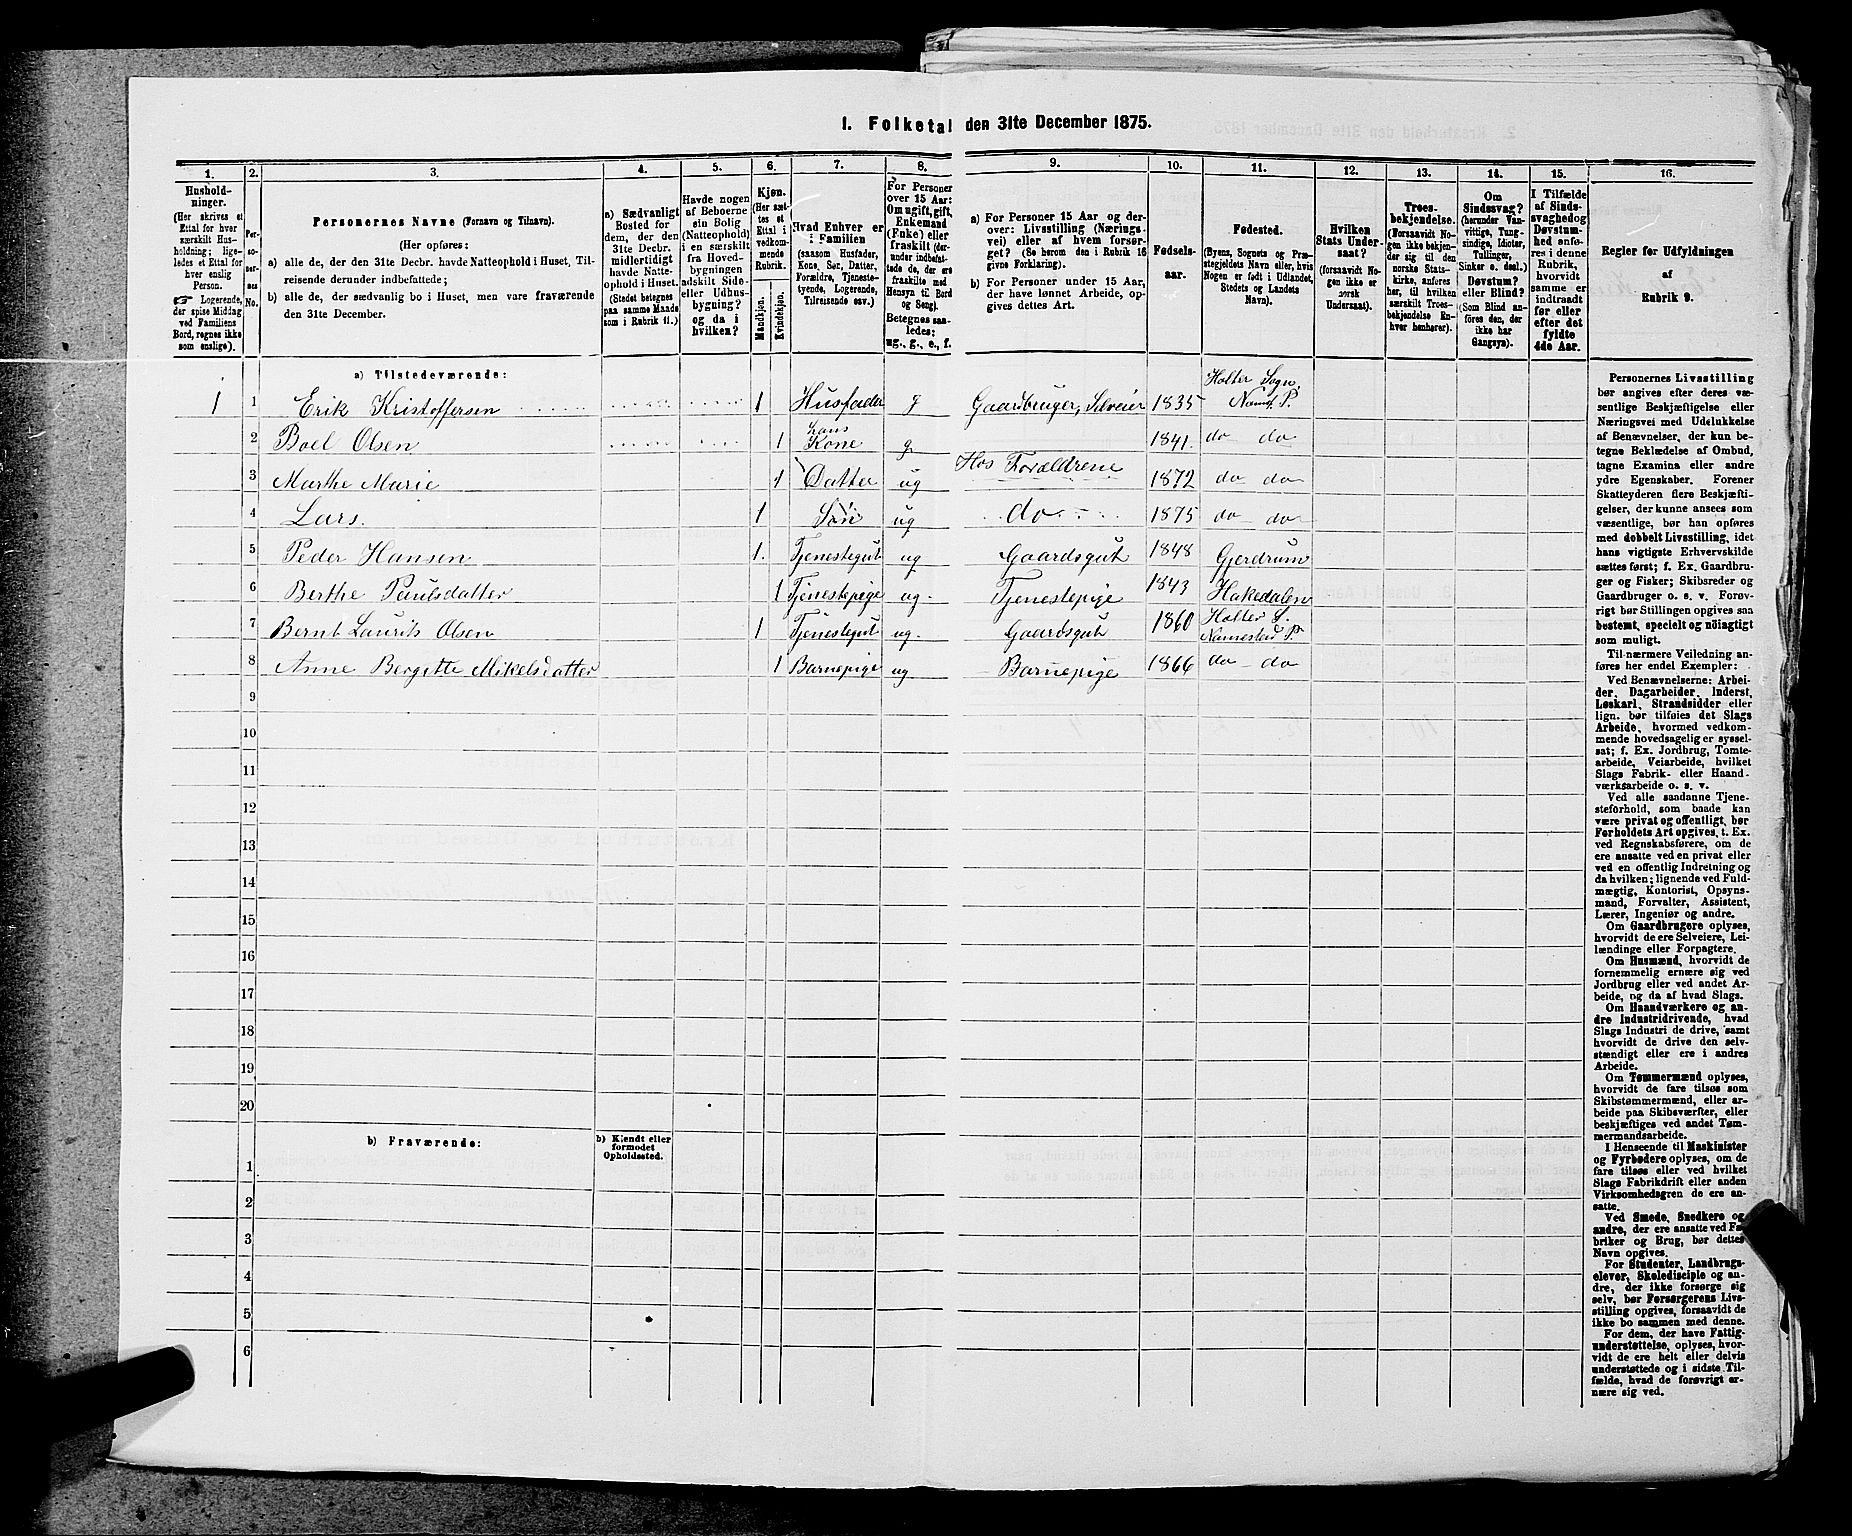 1. Folketal den 31te December 1875.
1. 2. 3. 4. 5. 6. 7. 8. 9. 10. 11. 12. 13. 14. 15. 16.
Hushold-
ninger.
(Her skrives et
Ettal for hver
særskilt Hus-
holdning; lige-
ledes et Ettal for
hver enslig
Person.
☞ Logerende,
der spise Middag
ved Familiens
Bord, regnes ikke
som enslige).
Per-
so-
ner-
nes
No.
Personernes Navne (Fornavn og Tilnavn).
(Her opføres:
a) alle de, der den 31te Decbr. havde Natteophold i Huset, Til-
reisende derunder indbefattede;
b) alle de, der sædvanlig bo i Huset, men vare fraværende
den 31te December.
a) Sædvanligt
Bosted for
dem, der den
31te Decbr.
midlertidigt
havde Natte-
ophold i Huset.
(Stedet betegnes
paa samme Maade
som i Rubrik 11.)
Havde nogen
af Beboerne
sin Bolig
(Natteophold)
i en særskilt
fra Hoved-
bygningen
adskilt Side-
eller Udhus-
bygning?
og da i
hvilken?
Kjøn.
(Her sæt-
tes et
Ettal i
vedkom-
mende
Rubrik.
Mandkjøn.
Kvindekjøn.
Hvad Enhver er
i Familien
(saasom Husfader,
Kone, Søn, Datter,
Forældre, Tjeneste-
tyende, Logerende,
Tilreisende osv.)
For Personer
over 15 Aar:
Om ugift, gift,
Enkemand
(Enke) eller
fraskilt (der-
under indbefat-
tede de, der ere
fraskilte med
Hensyn til Bord
og Seng).
Betegnes saa-
ledes:
ug., g., e., f.
a) For Personer 15 Aar og der-
over: Livsstilling (Nærings-
vei) eller af hvem forsør-
get? (Se herom den i Rubrik 16
givne Forklaring).
b) For Personer under 15 Aar,
der have lønnet Arbeide, op-
gives dettes Art.
Fødsels-
aar.
Fødested.
(Byens, Sognets og Præ-
stegjeldets Navn eller, hvis
Nogen er født i Udlandet,
Stedets og Landets
Navn).
Hvilken
Stats Under-
saat?
(forsaavidt No-
gen ikke er
norsk
Undersaat).
Troes-
bekjendelse.
(Forsaavidt No-
gen ikke bekjen-
der sig til den
norske Stats-
kirke, anføres
her, til hvilken
særskilt Troes-
bekjendelse En-
hver henhører).
Om
Sindssvag?
(herunder Van-
vittige, Tung-
sindige, Idioter,
Tullinger,
Sinker o. desl.)
Døvstum?
eller Blind?
(Som Blind an-
føres den, der
ikke har
Gangsyn).
I Tilfælde
af Sinds-
svaghed og
Døvstum-
hed anfø-
res i denne
Rubrik,
hvorvidt
samme er
indtraadt
før eller
efter det
fyldte
4de Aar.
Regler for Udfyldningen
af
Rubrik 9.
a) Tilstedeværende:
1 1 Erik Kristoffersen 1 Husfader g Gaardbruger, Selveier 1835 Holter Sogn, Namst. P.
2 Boel Olsen 1 hans Kone g 1841 do do
3 Marthe Marie 1 Datter ug Hos Forældrene 1872 do do
4 Lars 1 Søn ug do 1875 do do
5 Peder Hansen 1 Tjenestegut ug Gaardsgut 1848 Gjerdrum
6 Berthe Paulsdatter 1 Tjenestepige ug Tjenestepige 1843 Hakedalen
7 Bernt Laurits Olsen 1 Tjenestegut ug Gaardsgut 1860 Holter S. Namestad P.
8 Anne Bergitte Mikelsdatter 1 Barnepige ug Barnepige 1866 do do
9
10
11
12
13
14
15
16
17
18
19
20
b) Fraværende:
b) Kjendt eller
formodet
Opholdssted.
1
2
3
4
5
6
Personernes Livsstilling
bør angives efter deres væ-
sentlige Beskjæftigelse eller
Næringsvei med Udelukkelse
af Benævnelser, der kun be-
tegne Beklædelse af Ombud,
tagne Examina eller andre
ydre Egenskaber. Forener
Skatteyderen flere Beskjæfti-
gelser, der kunne ansees som
væsentlige, bør han opføres
med dobbelt Livsstilling, idet
hans vigtigste Erhvervskilde
sættes først; f. Ex. Gaardbru-
ger og Fisker; Skibsreder og
Gaardbruger o. s. v. Forøv-
rigt bør Stillingen opgives saa
bestemt, specielt og nøiagtigt
som muligt.
Til nærmere Veiledning an-
føres her endel Exempler:
Ved Benævnelserne: Arbei-
der, Dagarbeider, Inderst,
Løskarl, Strandsidder eller
lign. bør tilføies det Slags
Arbeide, hvormed vedkom-
mende hovedsagelig er syssel-
sat; f. Ex. Jordbrug, Tomte-
arbeide, Veiarbeide, hvilket
Slags Fabrik- eller Haand-
værksarbeide o. s. v.
Ved alle saadanne Tjene-
steforhold, som baade kan
være privat og offentligt, bør
Forholdets Art opgives, t. Ex.
ved Regnskabsførere, om de
ere ansatte ved en privat eller
ved en offentlig Indretning og
da hvilken; lignende ved Fuld-
mægtig, Kontorist, Opsyns-
mand, Forvalter, Assistent,
Lærer, Ingeniør og andre.
Om Gaardbrugere oplyses,
hvorvidt de ere Selveiere, Lei-
lændinge eller Forpagtere.
Om Husmænd, hvorvidt de
fornemmelig ernære sig ved
Jordbrug eller ved andet Ar-
beide, og da af hvad Slags.
Om Haandværkere og an-
dre Industridrivende, hvad
Slags Industri de drive, samt
hvorvidt de drive den selv-
stændigt eller ere i andres
Arbeide.
Om Tømmermænd oplyses,
hvorvidt de fare tilsøs som
Skibstømmermænd, eller ar-
beide paa Skibsværfter, eller
beskjæftiges ved andet Tøm-
mermandsarbeide.
I Henseende til Maskinister
og Fyrbødere oplyses, om de
fare tilsøs eller ved hvilket
Slags Fabrikdrift eller anden
Virksomhedsgren de ere an-
satte.
Ved Smede, Snedkere og
andre, der ere ansatte ved Fa-
briker og Brug, bør dettes
Navn opgives.
For Studenter, Landbrugs-
elever, Skoledisciple og an-
dre, der ikke forsørge sig
selv, bør Forsørgerens Livs-
stilling opgives, forsaavidt de
ikke bo sammen med denne.
For dem, der have Fattig-
understøttelse, oplyses, hvor-
vidt de ere helt eller delvis
understøttede og i sidste Til-
fælde, hvad de forøvrigt er-
nære sig ved.